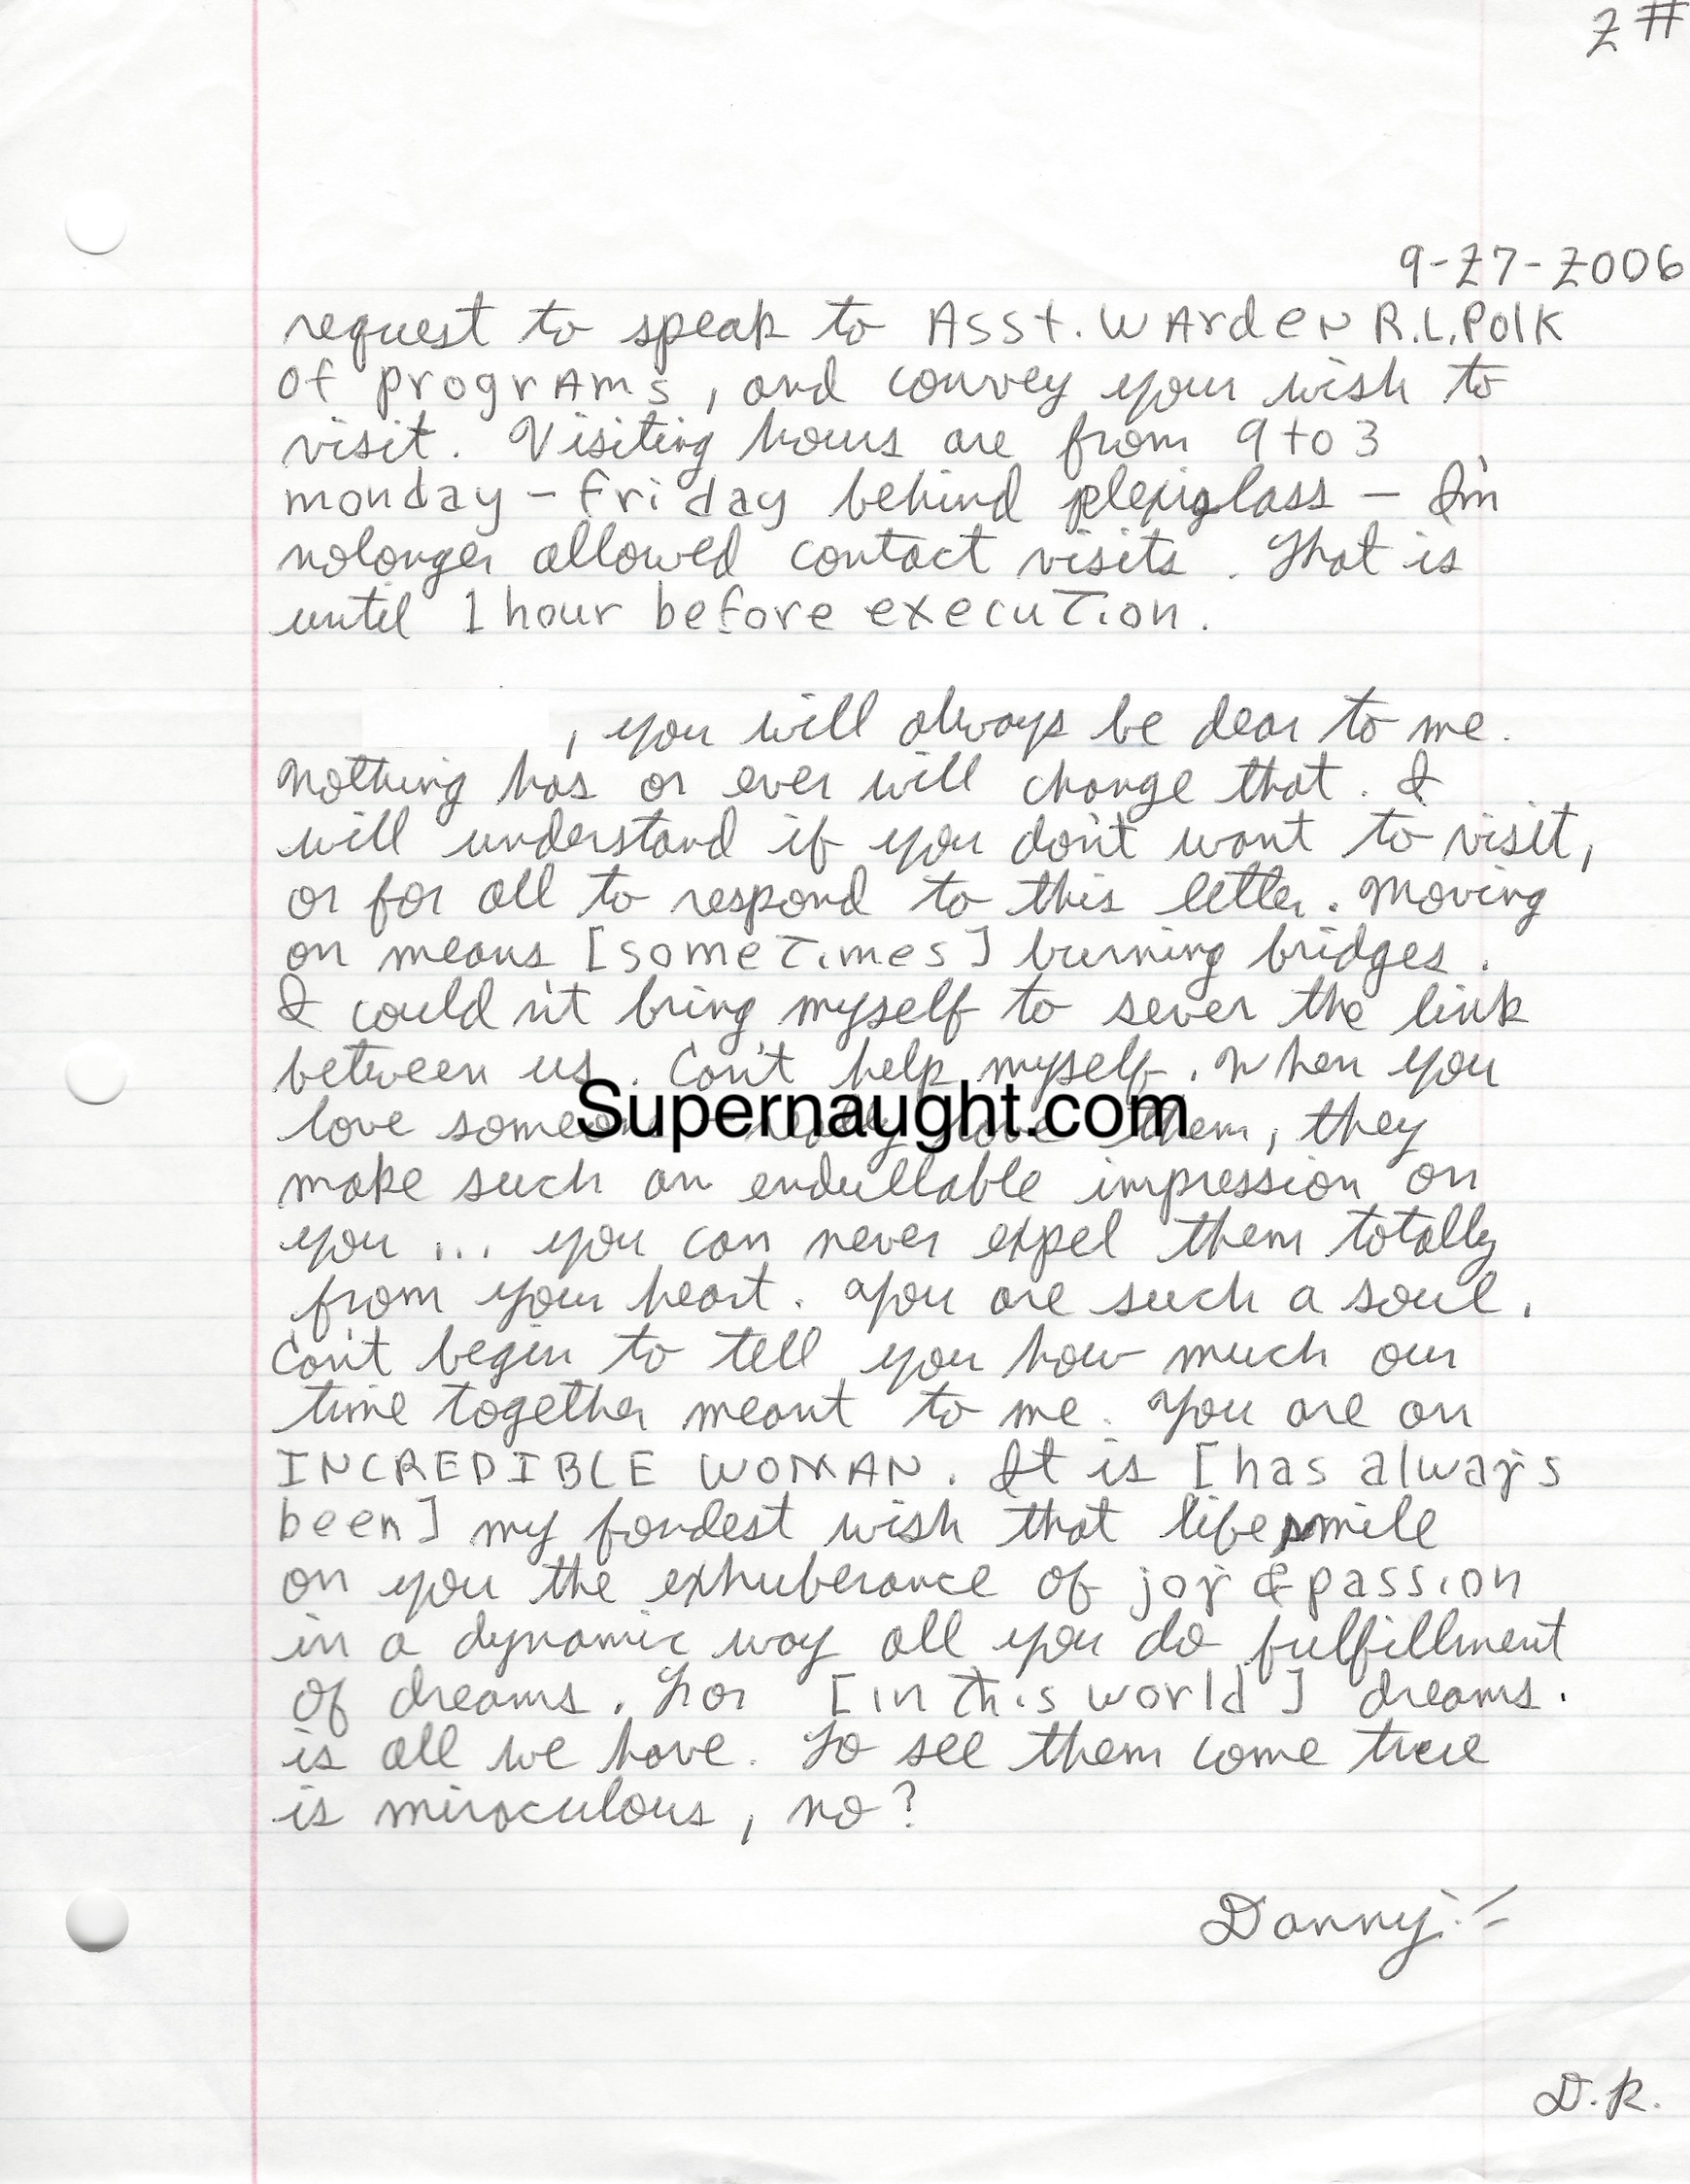 2#
9-27-2006
request to speak to Asst. Warden R.L. Polk
of programs, and convey your wish to
visit. Visiting hours are from 9 to 3
monday - friday behind plexiglass - I'm
nolonger allowed contact visits. That is
until 1 hour before execution.
, you will always be dear to me.
Nothing has or ever will change that. I
will understand if you don't want to visit,
or for all to respond to this letter. Moving
on means [sometimes] burning bridges.
I couldn't bring myself to sever the link
between us. Can't help myself. When you
love someone - really love them, they
Supernaught.com
make such an endullable impression on
you ... you can never expel them totally
from your heart. You are such a soul.
Can't begin to tell you how much our
time together meant to me. You are an
INCREDIBLE WOMAN. It is [has always
been] my fondest wish that life smile
on you the exhuberance of joy & passion
in a dynamic way all you do fulfillment
of dreams. For [in this world] dreams.
is all we have. To see them come true
is miraculous, no?
Danny
D.R.